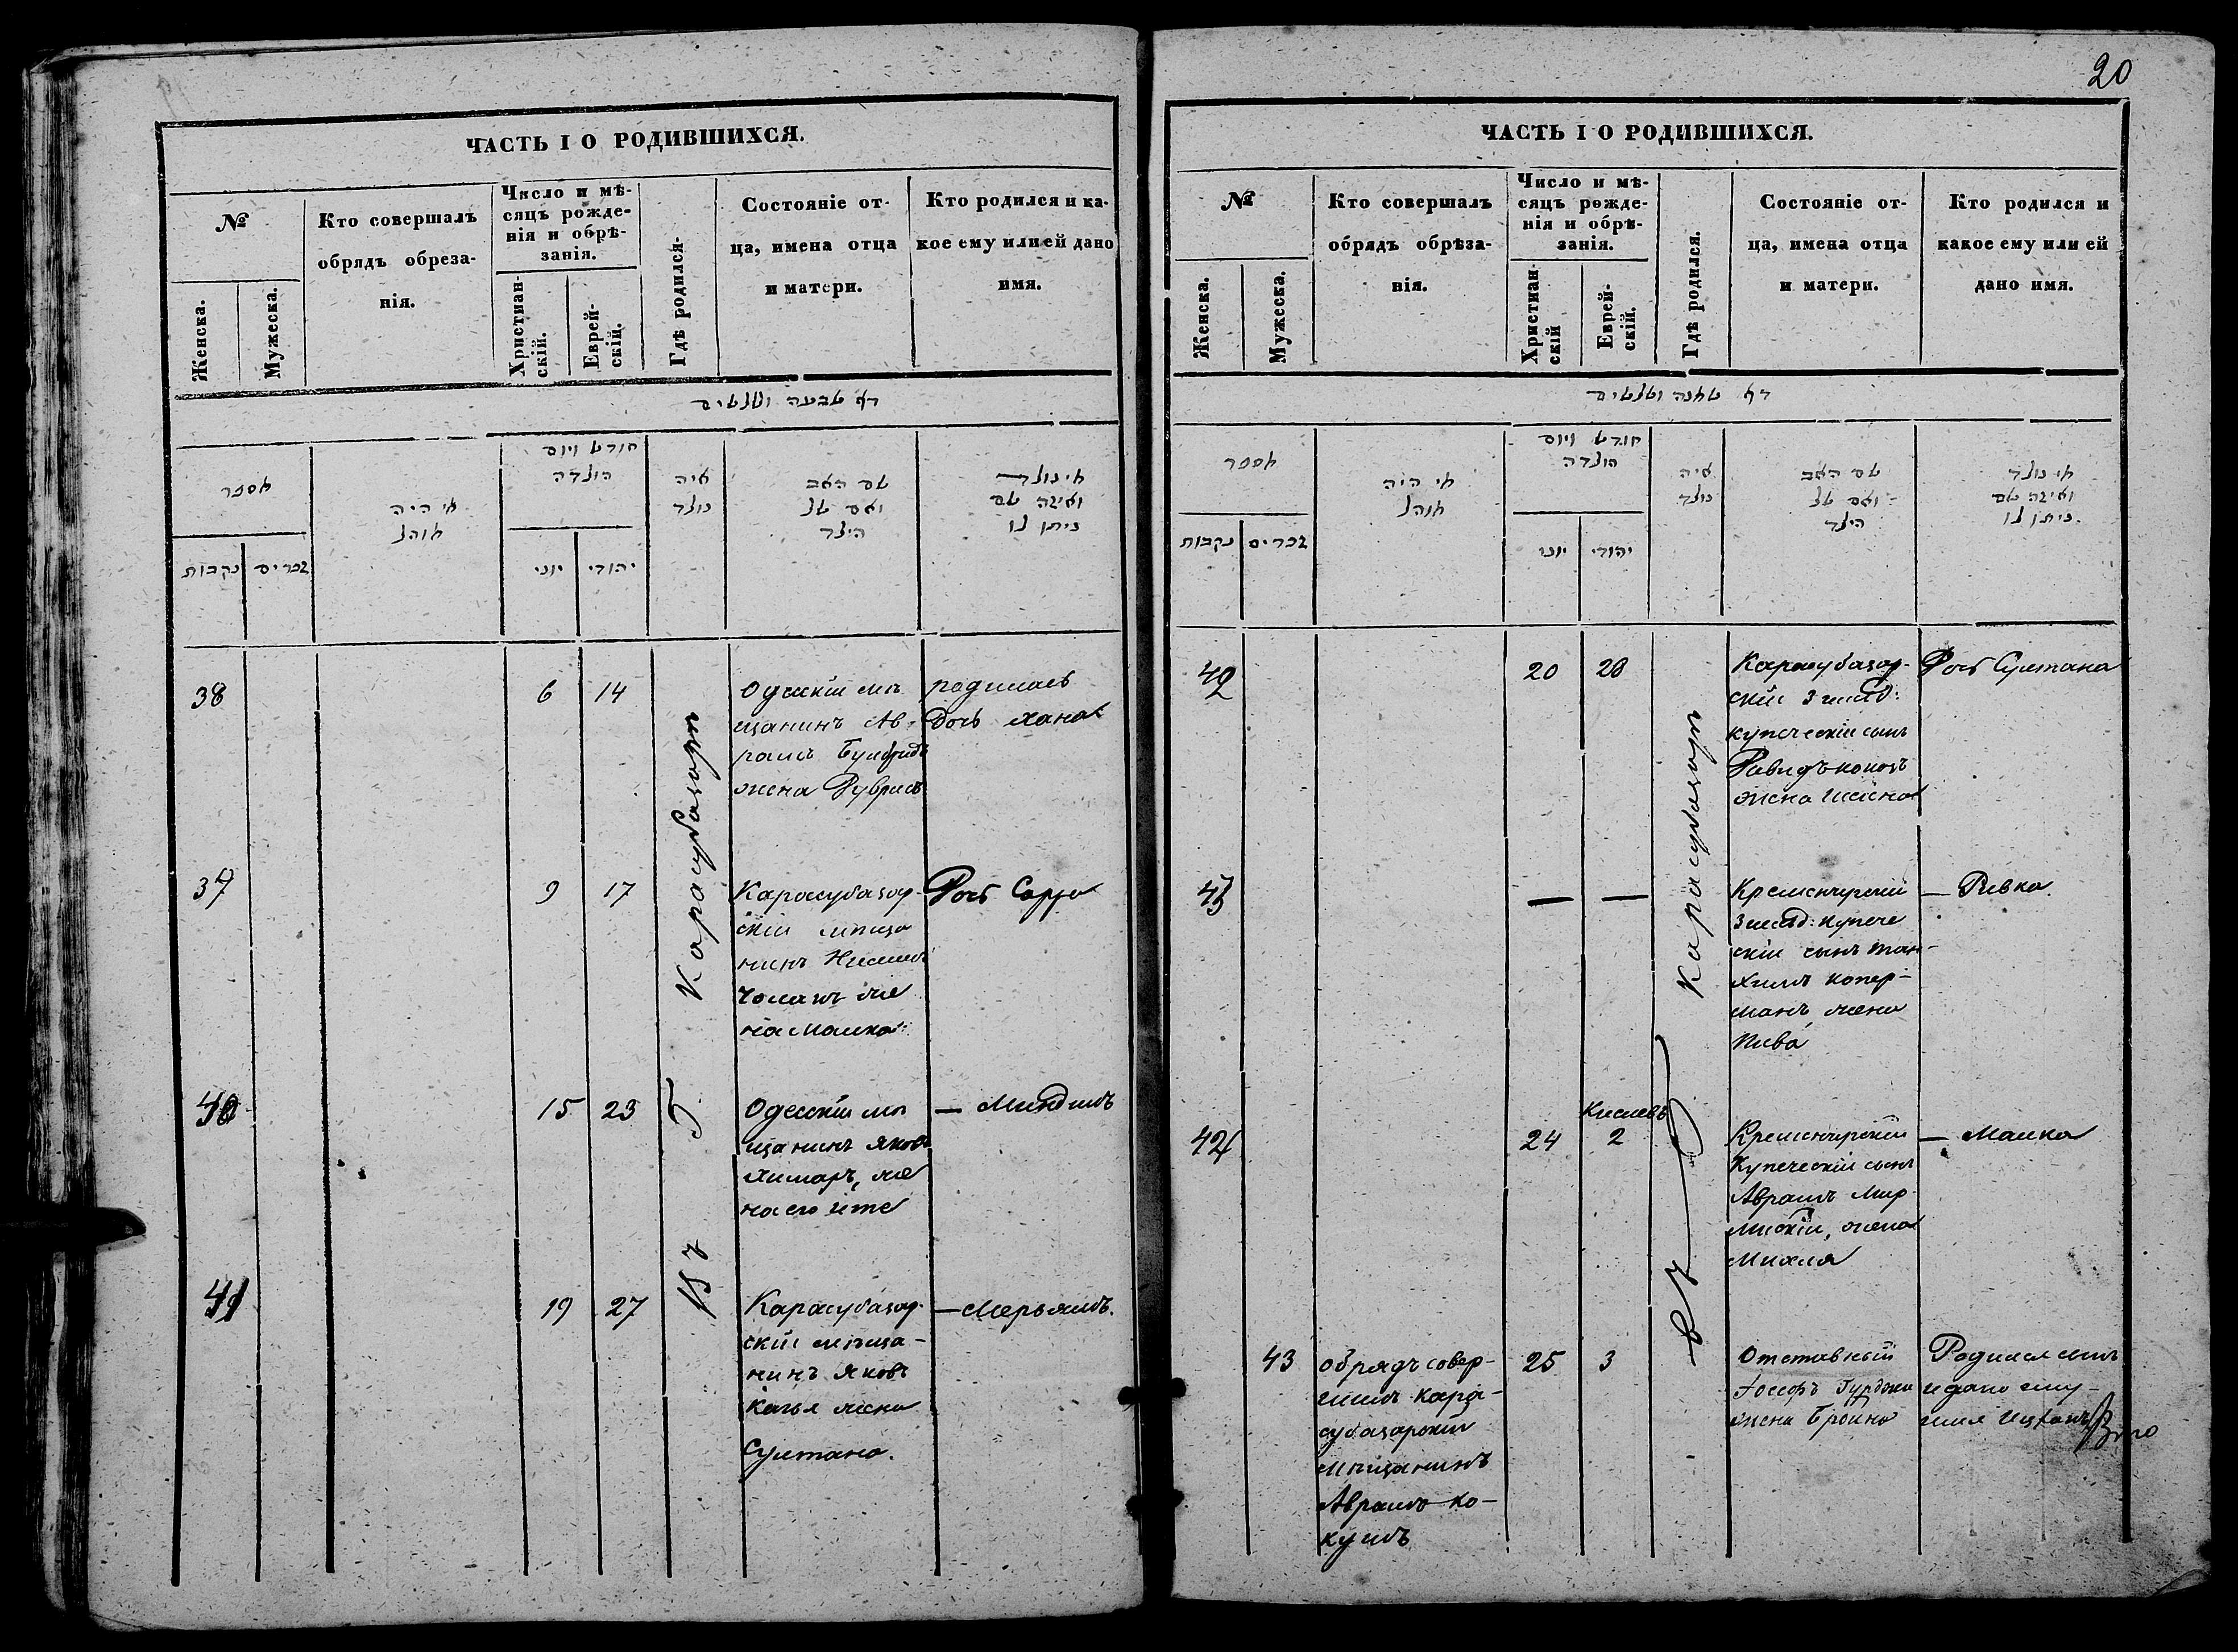 20
ЧАСТЬ I О РОДИВШИХСЯ.
№
Женска.
Мужеска.
Кто совершалъ
обрядъ обреза-
нія.
Число и мѣ-
сяцъ рожде-
нія и обрѣ-
занія.
Христиан-
скій.
Еврей-
скій.
Гдѣ родился.
Состояніе от-
ца, имена отца
и матери.
Кто родился и ка-
кое ему или ей дано
имя.
דף שבעה ושלשים
מספר
נקבות
זכרים
מי היה
מוהל
חודש ויום
הולדה
יוני
יהודי
איה
נולד
שם האב
ואם של
הילד
מי נולד
ואיזה שם
ניתן לו
38
6
14
Одесскій мѣ
щанинъ Ав-
рамъ
жена
родилась
Дочь Хана
37
9
17
Карасубазар-
скій мѣща
нинъ Нисимъ
же
на Малка
Дочь Сарра
40
15
23
Одесскій мѣ
щанинъ Яковъ
же
на его Ите
— Миндимъ
41
19
27
Карасубазар-
скій мѣща-
нинъ Яковъ
жена
Султана.
— Мерьямъ.
Въ Г. Карасубазарѣ
ЧАСТЬ I О РОДИВШИХСЯ.
№
Женска.
Мужеска.
Кто совершалъ
обрядъ обрѣза-
нія.
Число и мѣ-
сяцъ рожде-
нія и обрѣ-
занія.
Христиан-
скій
Еврей-
скій.
Гдѣ родился.
Состояніе от-
ца, имена отца
и матери.
Кто родился и
какое ему или ей
дано имя.
דף שמנה ושלשים
מספר
נקבות
זכרים
מי היה
מוהל
חודש ויום
הולדה
יוני
יהודי
איה
נולד
שם האב
ואם של
הילד
מי נולד
ואיזה שם
ניתן לו
42
20
28
Карасубазар-
скій 3 гильд:
купеческій сынъ
Давидъ
жена
Дочь Султана
43
—
—
Кременчугскій
3 гильд: купече
скій сынъ Тан-
химъ Копер-
манъ жена
— Ривка.
24
Кислевъ
2
Кременчугскій
Купеческій сынъ
Аврамъ Мир-
жена
Михля
— Малка
43
обрядъ совер-
шилъ Кара-
субазарскій
мѣщанинъ
Аврамъ Ко-
кушъ
25
3
Отставный
жена Брайна
Родился сынъ
и дано ему-
имя Ицхакъ
Въ Г. Карасубазарѣ